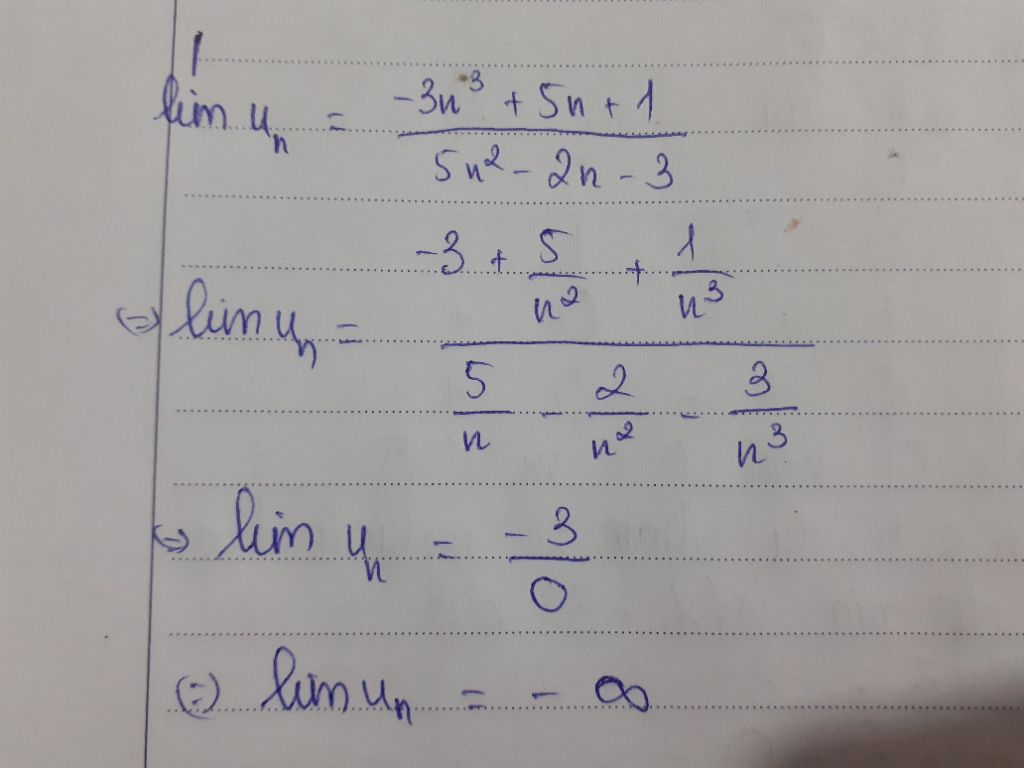 lim uₙ = (-3n³ + 5n + 1) / (5n² - 2n - 3)
(=) lim uₙ = (-3 + 5/n² + 1/n³) / (5/n - 2/n² - 3/n³)
(=) lim uₙ = -3/0
(=) lim uₙ = - ∞